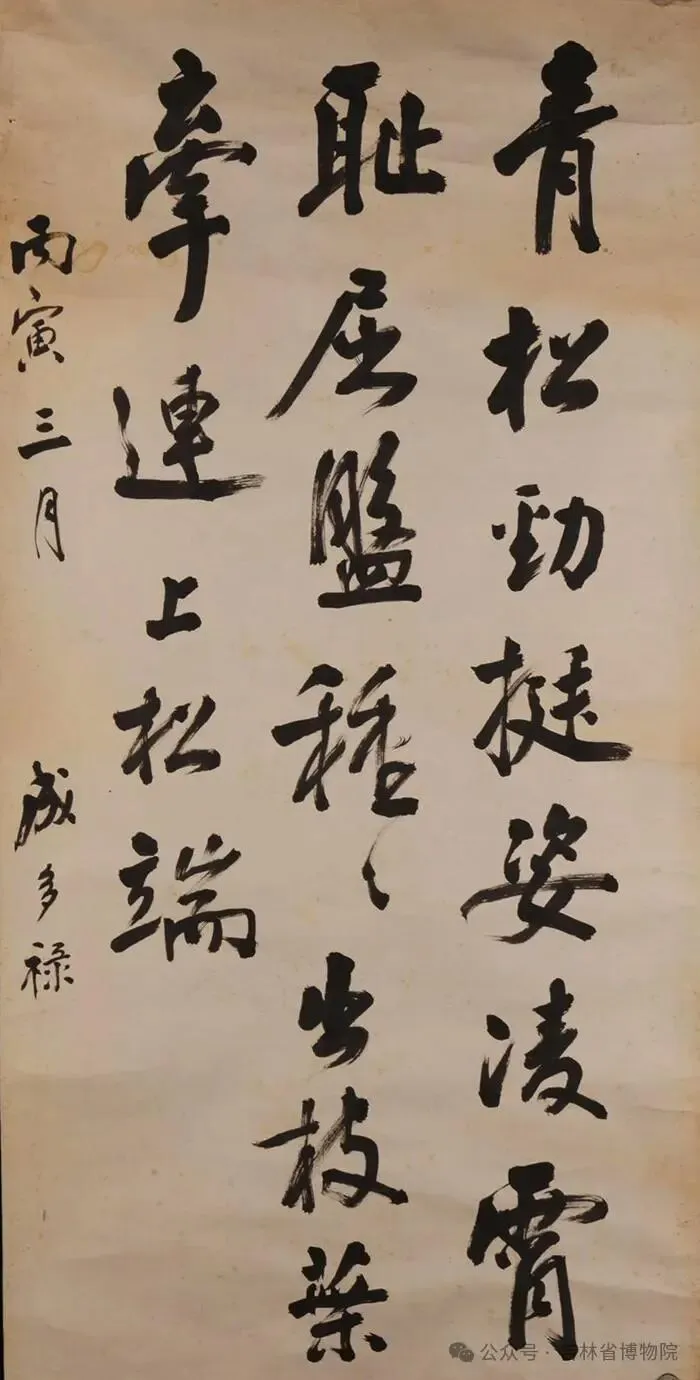 青松勁挺姿凌霄
耻屈盤種〻出枝葉
牽連上松端
丙寅三月 成多禄
公众号·吉林省博物院